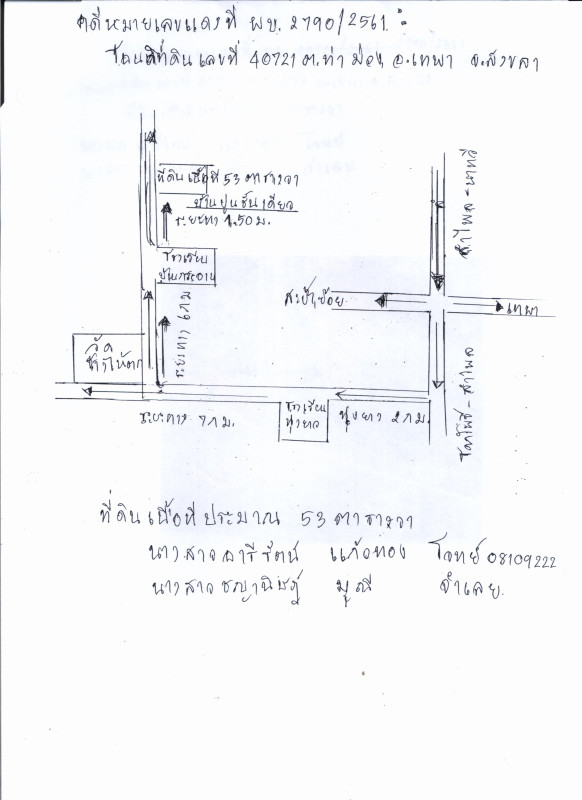 คดีหมายเลขแดงที่ ผบ. 2790/2561
โฉนดที่ดินเลขที่ 40721 ต.ท่าม่วง อ.เทพา จ.สงขลา
ที่ดินเนื้อที่ 53 ตารางวา
บ้านปูนชั้นเดียว
ระยะทาง 1.50 ม.
โรงเรียน
ระยะทาง 1 กม
วัด
ช้างให้ตก
สะบ้าย้อย
เทพา
ลำไพล - นาทวี
โคกโพธิ์ - ลำไพล
ระยะทาง 7 กม.
โรงเรียน
ทุ่งยาว
ทุ่งยาว 2 กม.
ที่ดินเนื้อที่ประมาณ 53 ตารางวา
นางสาวอารีรัตน์ แก้วทอง โจทย์ 08109222
นางสาวชญานิษฎ์ มูณี จำเลย.